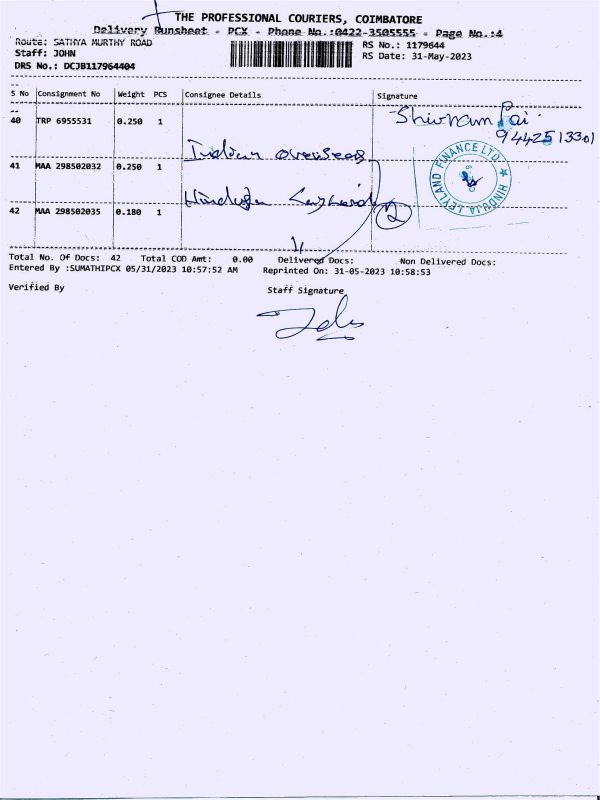 THE PROFESSIONAL COURIERS, COIMBATORE
Delivery Runsheet - PCX - Phone No.:0422-3505555 - Page No.:4
Route: SATHYA MURTHY ROAD
RS No.: 1179644
Staff: JOHN
RS Date: 31-May-2023
DRS No.: DCJB117964404
S No Consignment No Weight PCS Consignee Details Signature
40 TRP 6955531 0.250 1 Shivram Pai
9442513301
Indian overseas
41 MAA 298502032 0.250 1
HINDUJA LEYLAND FINANCE LTD
Hinduja Leyland
2
42 MAA 298502035 0.180 1
Total No. Of Docs: 42 Total COD Amt: 0.00 Delivered Docs: Non Delivered Docs:
Entered By :SUMATHIPCX 05/31/2023 10:57:52 AM Reprinted On: 31-05-2023 10:58:53
Verified By Staff Signature